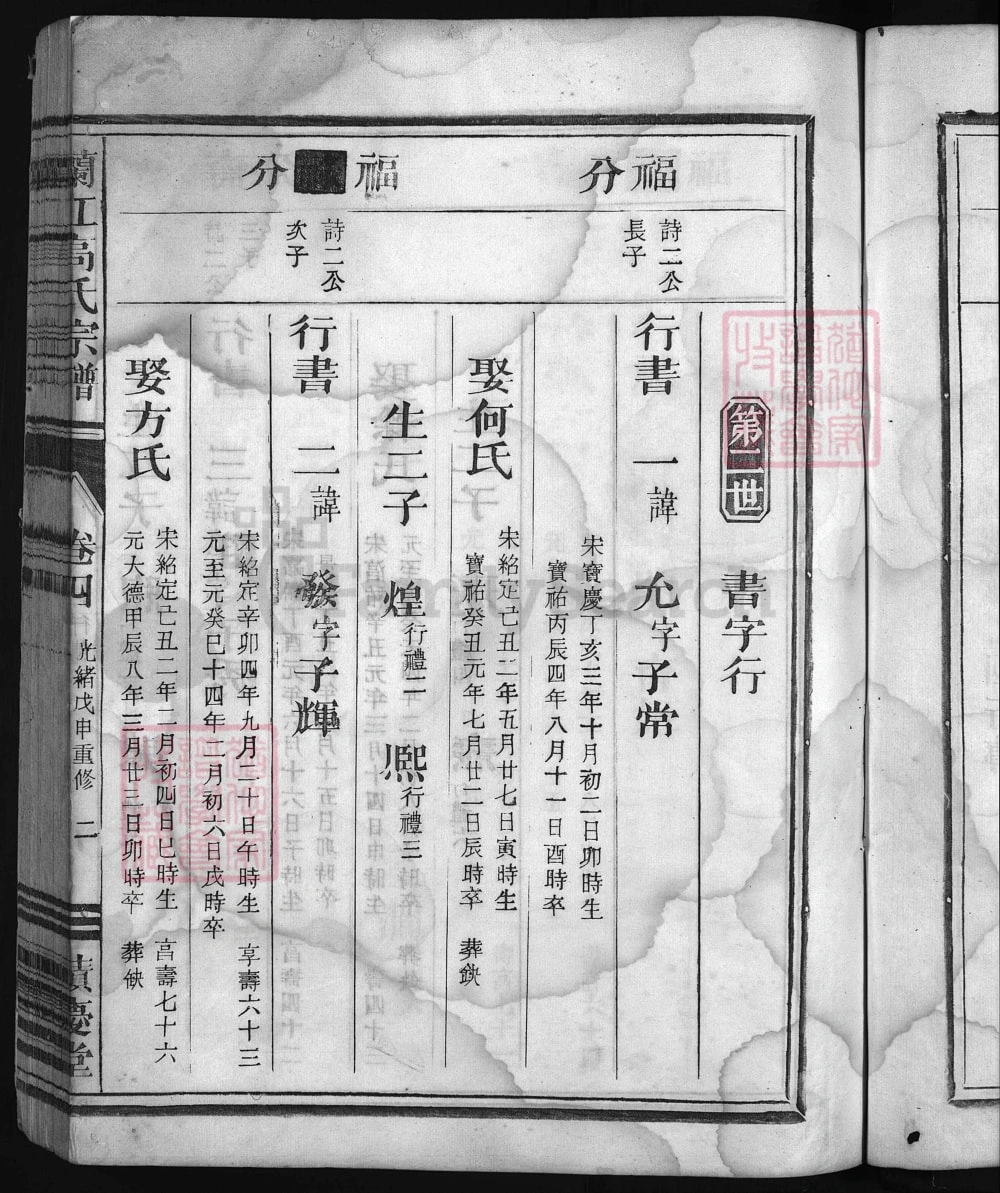 第二世
書字行
福分
詩二公
長子
行書一諱允字子常
宋寶慶丁亥三年十月初二日卯時生
寶祐丙辰四年八月十一日酉時卒
娶何氏
宋紹定己丑二年五月廿七日寅時生
寶祐癸丑元年七月廿二日辰時卒 葬缺
生二子 煌行禮二 熙行禮三
福分
詩二公
次子
行書二諱發字子輝
宋紹定辛卯四年九月二十日午時生 享壽六十三
元至元癸巳十四年二月初六日戌時卒
娶方氏
宋紹定己丑二年二月初四日巳時生 享壽七十六
元大德甲辰八年三月廿三日卯時卒 葬缺
蘭江高氏宗譜
卷四
光緒戊申重修
二
積慶堂
FamilySearch